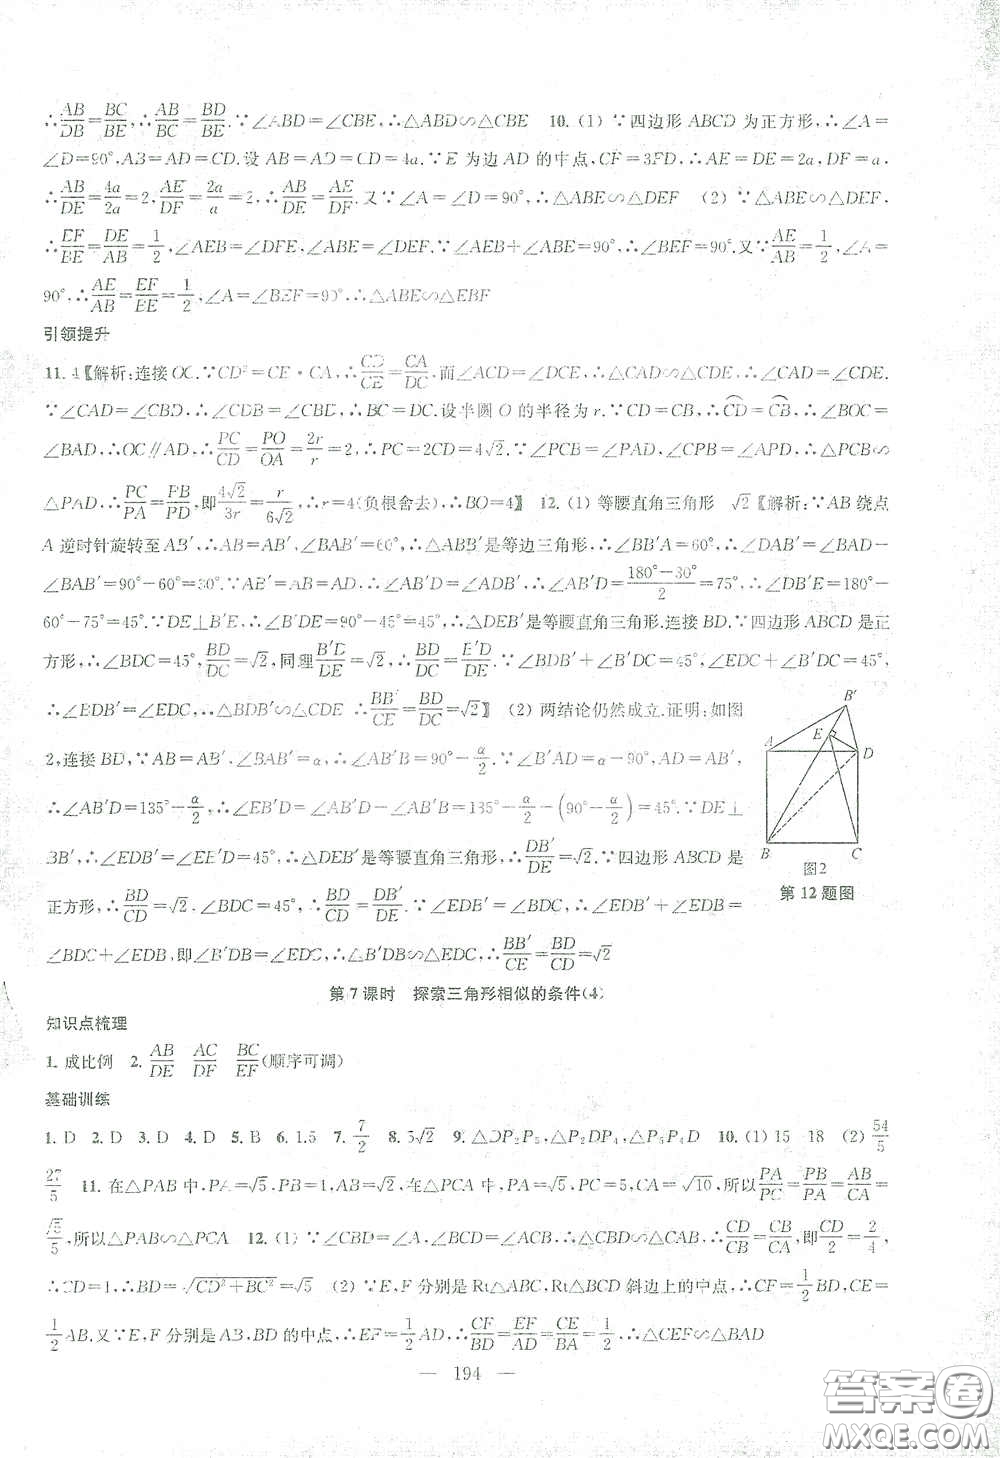 ∴AB/DB=BC/BE,∴AB/BC=BD/BE.∵∠ABD=∠CBE,∴△ABD∽△CBE 10.(1) ∵四边形ABCD为正方形,∴∠A=
∠D=90°,AB=AD=CD.设AB=AD=CD=4a.∵E为边AD的中点,CF=3FD,∴AE=DE=2a,DF=a.
∴AB/DE=4a/2a=2,AE/DF=2a/a=2,∴AB/DE=AE/DF.又∵∠A=∠D=90°,∴△ABE∽△DEF (2) ∵△ABE∽△DEF,
∴EF/BE=DE/AB=1/2,∠AEB=∠DFE,∠ABE=∠DEF.∵∠AEB+∠ABE=90°,∴∠BEF=90°.又∵AE/AB=1/2,∠A=
90°,∴AE/AB=EF/BE=1/2,∠A=∠BEF=90°,∴△ABE∽△EBF
引领提升
11.4〖解析:连接OC.∵CD²=CE·CA,∴CD/CE=CA/DC.而∠ACD=∠DCE,∴△CAD∽△CDE,∴∠CAD=∠CDE.
∵∠CAD=∠CBD,∴∠CDB=∠CBD,∴BC=DC.设半圆O的半径为r.∵CD=CB,∴CD=CB,∴∠BOC=
∠BAD,∴OC∥AD,∴PC/CD=PO/OA=2r/r=2,∴PC=2CD=4√2.∵∠PCB=∠PAD,∠CPB=∠APD,∴△PCB∽
△PAD,∴PC/PA=PB/PD,即4√2/3r=r/6√2,∴r=4(负根舍去),∴BO=4〗 12.(1) 等腰直角三角形 √2〖解析:∵AB绕点
A逆时针旋转至AB′,∴AB=AB′,∠BAB′=60°,∴△ABB′是等边三角形,∴∠BB′A=60°,∴∠DAB′=∠BAD-
∠BAB′=90°-60°=30°.∵AB′=AB=AD,∴∠AB′D=∠ADB′,∴∠AB′D=180°-30°/2=75°,∴∠DB′E=180°-
60°-75°=45°.∵DE⊥B′E,∴∠B′DE=90°-45°=45°,∴△DEB′是等腰直角三角形.连接BD.∵四边形ABCD是正
方形,∴∠BDC=45°,BD/DC=√2,同理B′D/DE=√2,∴BD/DC=B′D/DE.∵∠BDB′+∠B′DC=45°,∠EDC+∠B′DC=45°,
∴∠BDB′=∠EDC,∴△BDB′∽△CDE ∴BB′/CE=BD/DC=√2〗 (2) 两结论仍然成立.证明:如图
2,连接BD,∵AB=AB′,∠BAB′=α,∴∠AB′B=90°-α/2.∵∠B′AD=α-90°,AD=AB′,
∴∠AB′D=135°-α/2,∴∠EB′D=∠AB′D-∠AB′B=135°-α/2-(90°-α/2)=45°.∵DE⊥
BB′,∴∠EDB′=∠EB′D=45°,∴△DEB′是等腰直角三角形,∴DB′/DE=√2.∵四边形ABCD是
正方形,∴BD/CD=√2.∠BDC=45°,∴BD/CD=DB′/DE.∵∠EDB′=∠BDC,∴∠EDB′+∠EDB=
∠BDC+∠EDB,即∠BDB′=∠EDC,∴△BDB′∽△EDC,∴BB′/CE=BD/CD=√2
A B′ E D B C
图2
第12题图
第7课时 探索三角形相似的条件(4)
知识点梳理
1. 成比例 2. AB/DE AC/DF BC/EF(顺序可调)
基础训练
1. D 2. D 3. D 4. D 5. B 6. 1.5 7. 7/2 8. 3√2 9. △DP₂P₅,△P₂DP₄,△P₅P₄D 10. (1) 15 18 (2) 54/5
27/5 11. 在△PAB中,PA=√5,PB=1,AB=√2,在△PCA中,PA=√5,PC=5,CA=√10,所以PA/PC=PB/PA=AB/CA=
√5/5,所以△PAB∽△PCA 12. (1) ∵∠CBD=∠A,∠BCD=∠ACB,∴△CBD∽△CAB,∴CD/CB=CB/CA,即CD/2=2/4,
∴CD=1,∴BD=√CD²+BC²=√5 (2) ∵E,F分别是Rt△ABC,Rt△BCD斜边上的中点,∴CF=1/2BD,CE=
1/2AB.又∵E,F分别是AB,BD的中点,∴EF=1/2AD,∴CF/BD=EF/AD=CE/BA=1/2,∴△CEF∽△BAD
— 194 —
答案圈
MXQE.COM